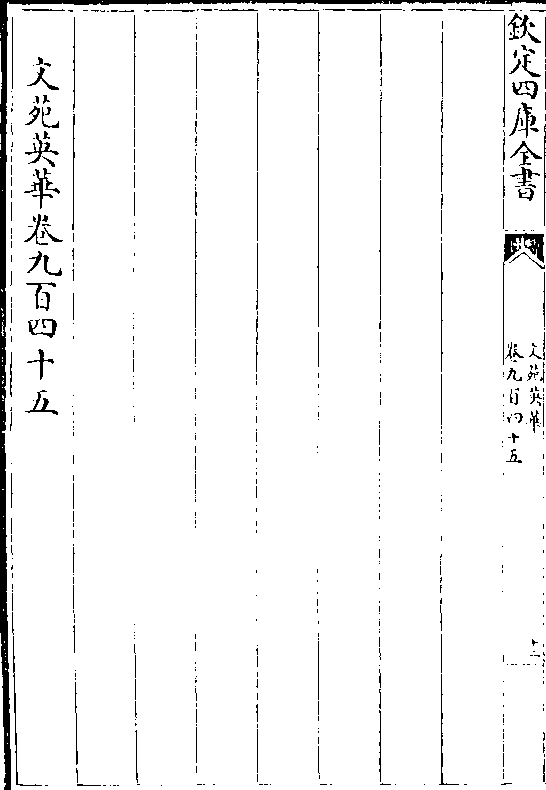 欽定四庫全書
文苑英華
卷九百四十五
文苑英華卷九百四十五